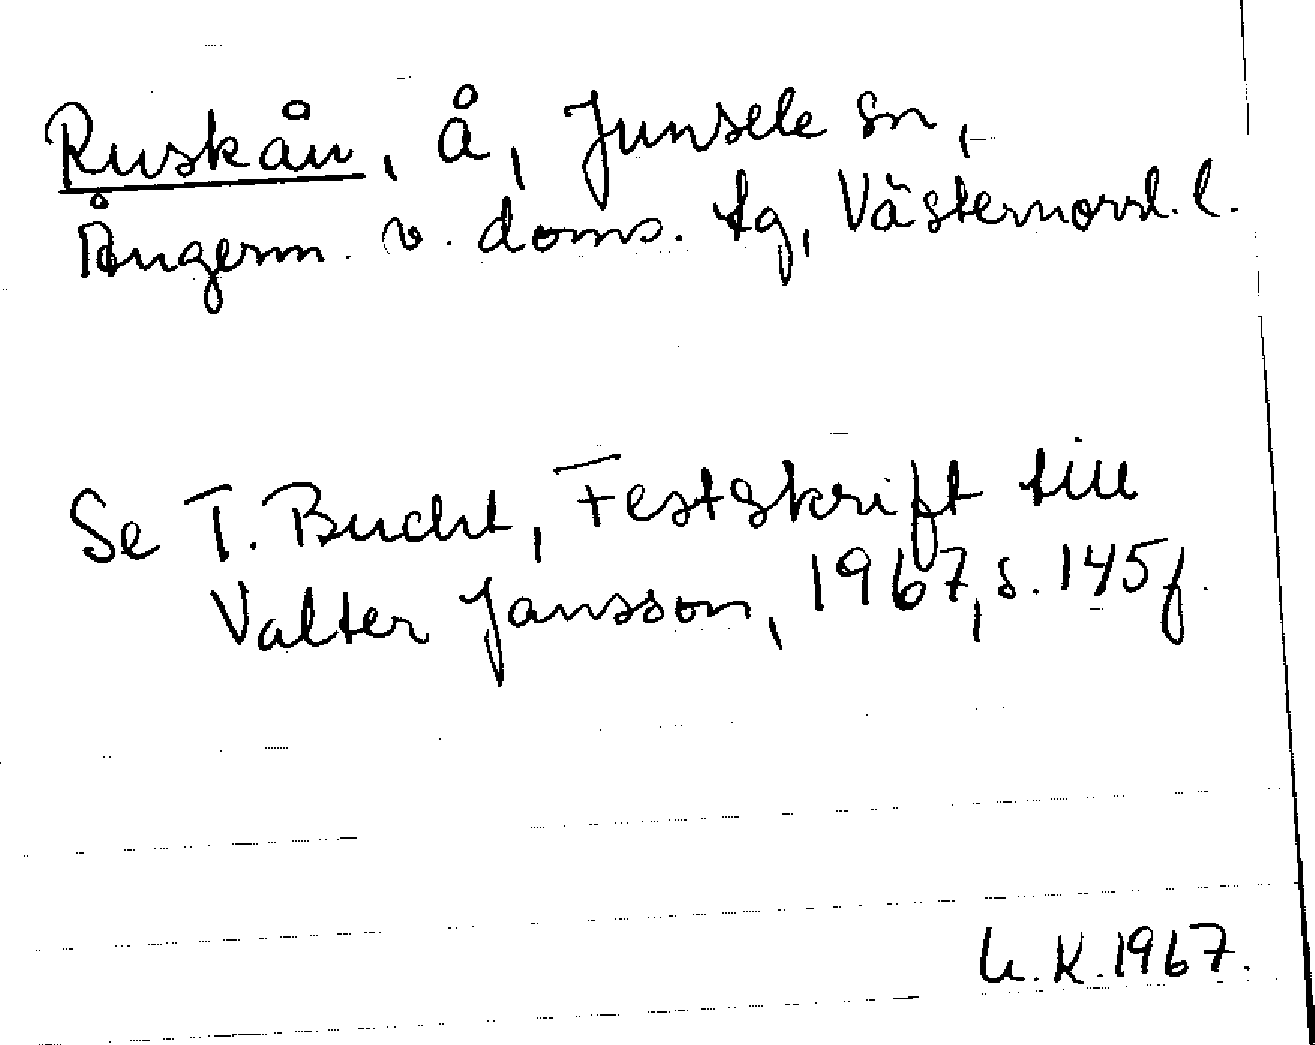 Ruskån, å, Junsele sn,
Ångerm. v. doms. tg, Västernorrl. l.
Se T. Bucht, Festskrift till
Valter Jansson, 1967, s. 145 f.
K. 1967.